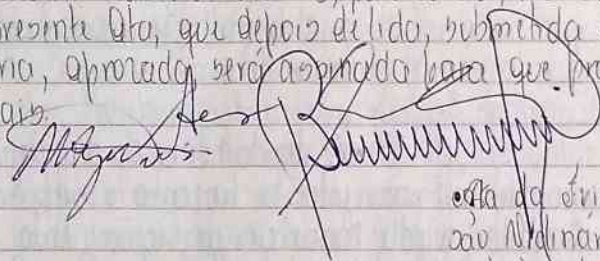 resente Ata, que depois de lida, submetida
ria, aprovada, será assinada para que pro
ais.
Ata da
são Ordinár